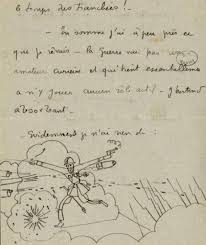 le temps des tranchées! _
_ En somme j'ai à peu près ce
que je rêvais _ La guerre vue par un
amateur curieux et qui tient essentiellement
à n'y jouer aucun rôle actif _ j'entend
absorbant _
_ Evidemment je n'ai rien du :